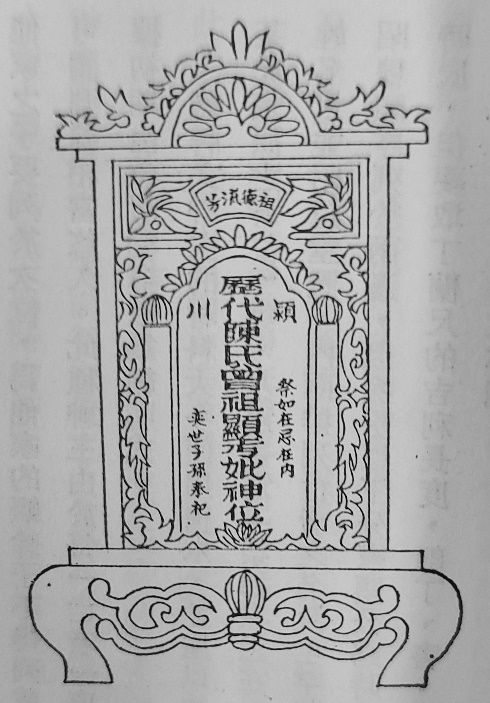 祖德流芳
穎川
祭如在忌在内
歷代陳氏曾祖顯考妣神位
奕世子孫奉祀